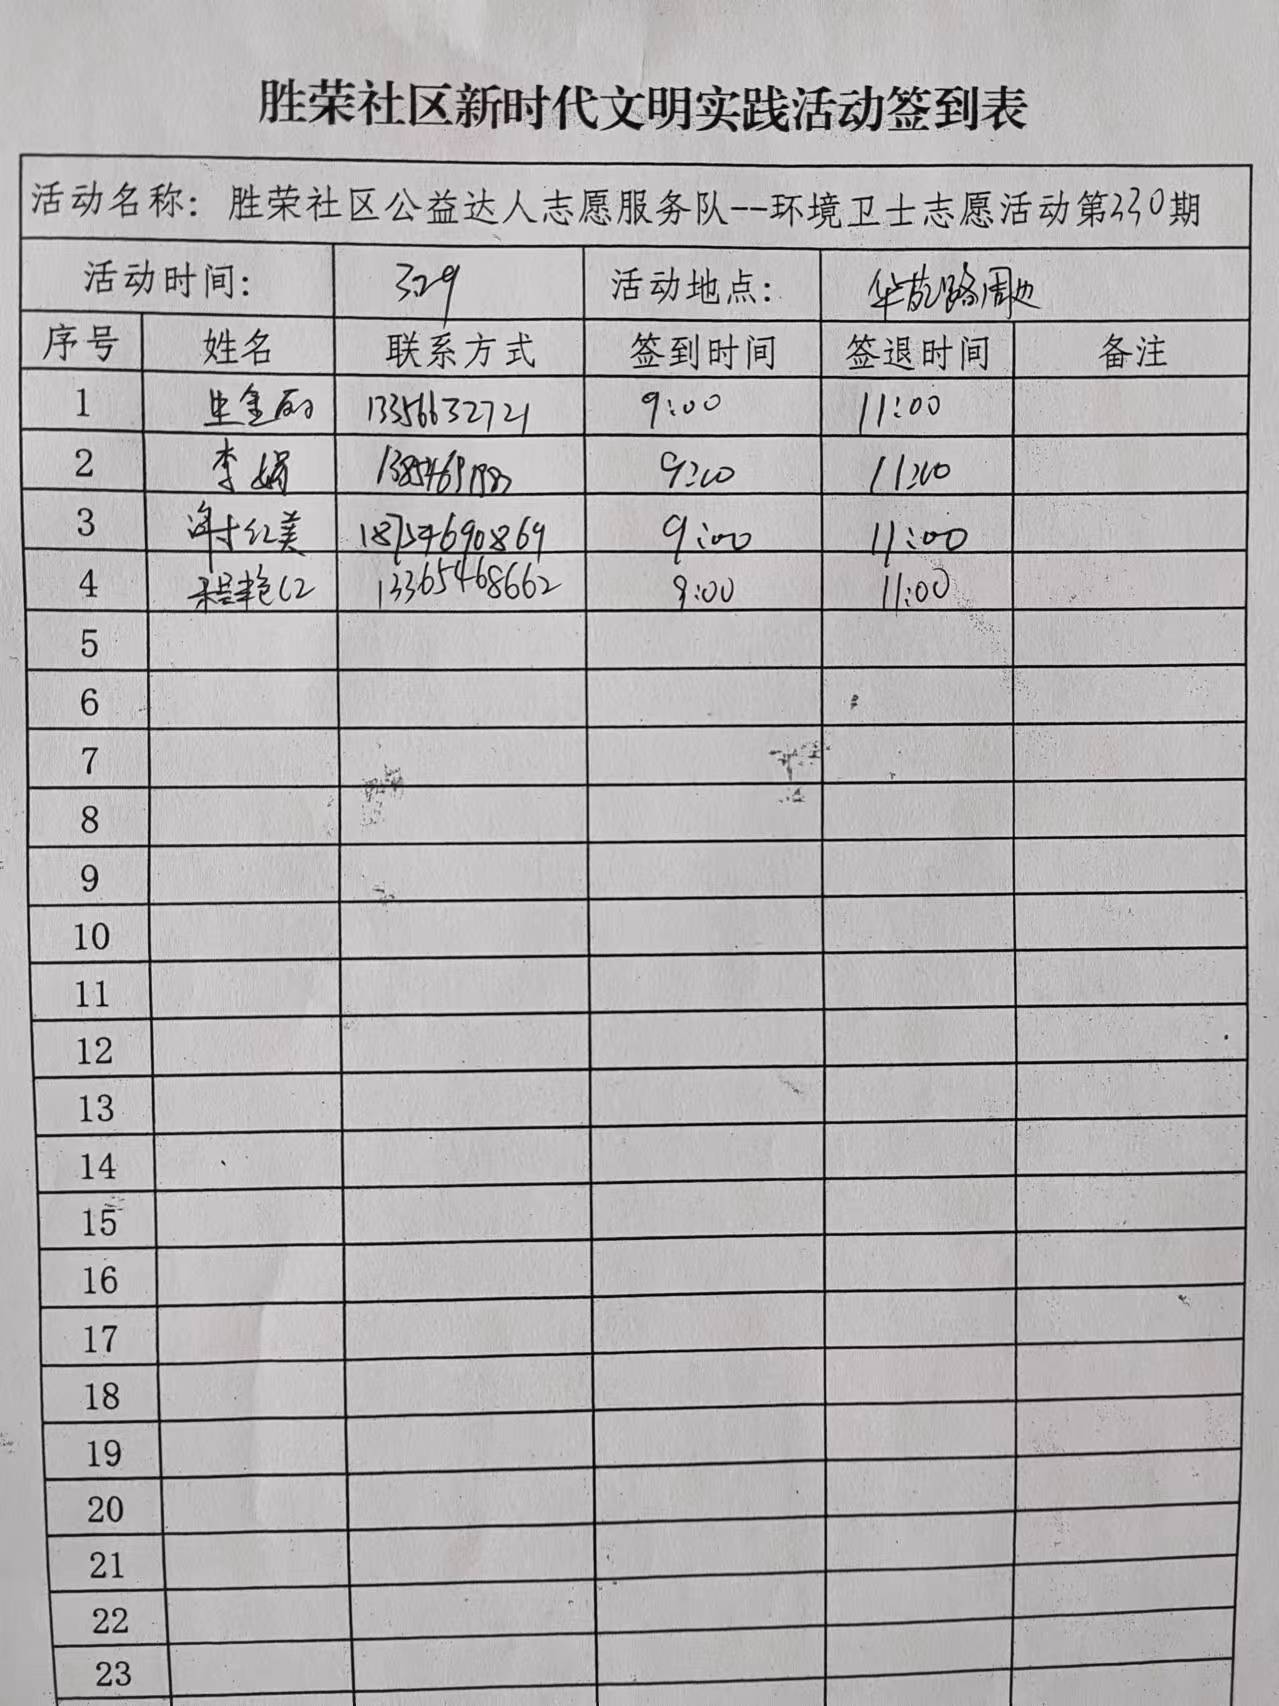 胜荣社区新时代文明实践活动签到表
活动名称：胜荣社区公益达人志愿服务队--环境卫士志愿活动第230期
活动时间： 3.29 活动地点： 路周边
序号 姓名 联系方式 签到时间 签退时间 备注
1 13356632721 9:00 11:00
2 李娟 9:00 11:00
3 红美 18754690869 9:00 11:00
4 13365468662 9:00 11:00
5
6
7
8
9
10
11
12
13
14
15
16
17
18
19
20
21
22
23